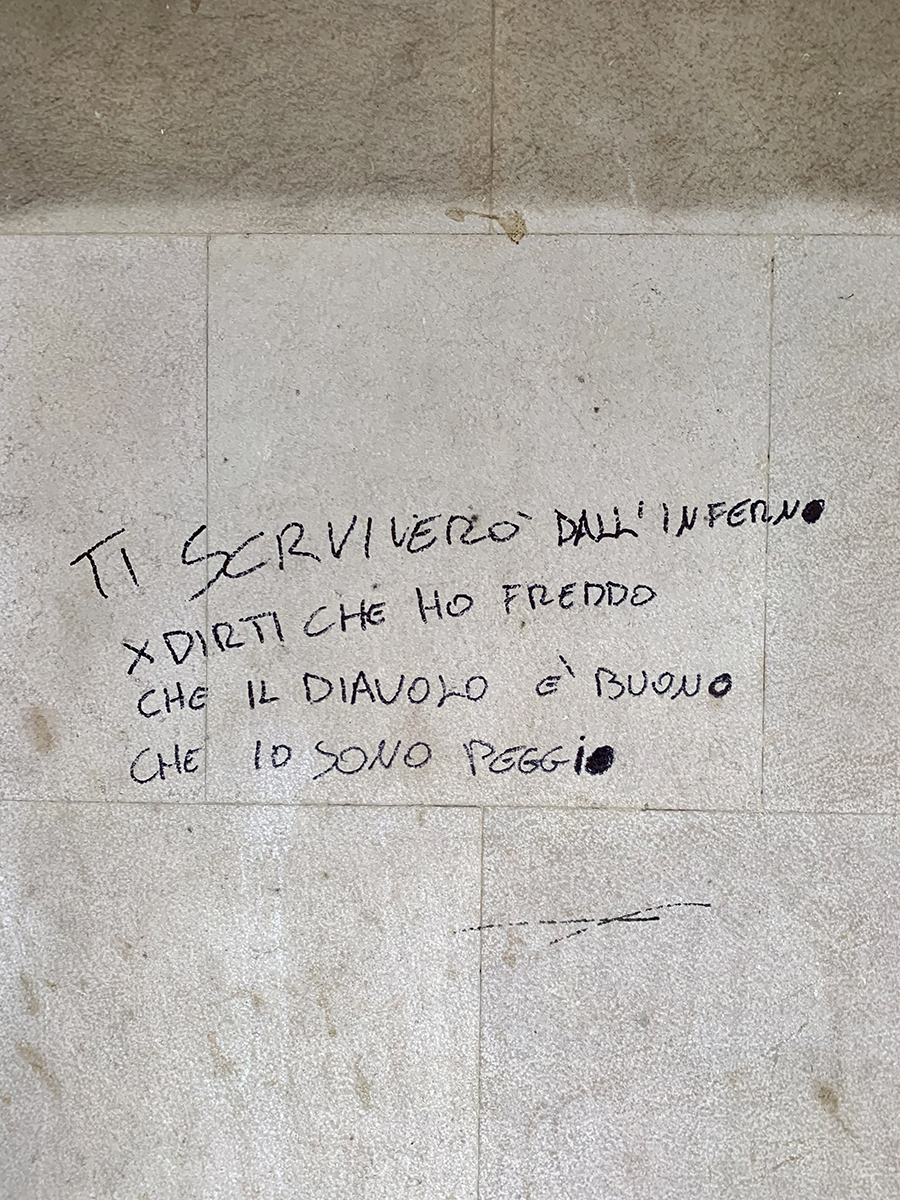 TI SCRVIVERÒ DALL'INFERNO
X DIRTI CHE HO FREDDO
CHE IL DIAVOLO È BUONO
CHE IO SONO PEGGIO